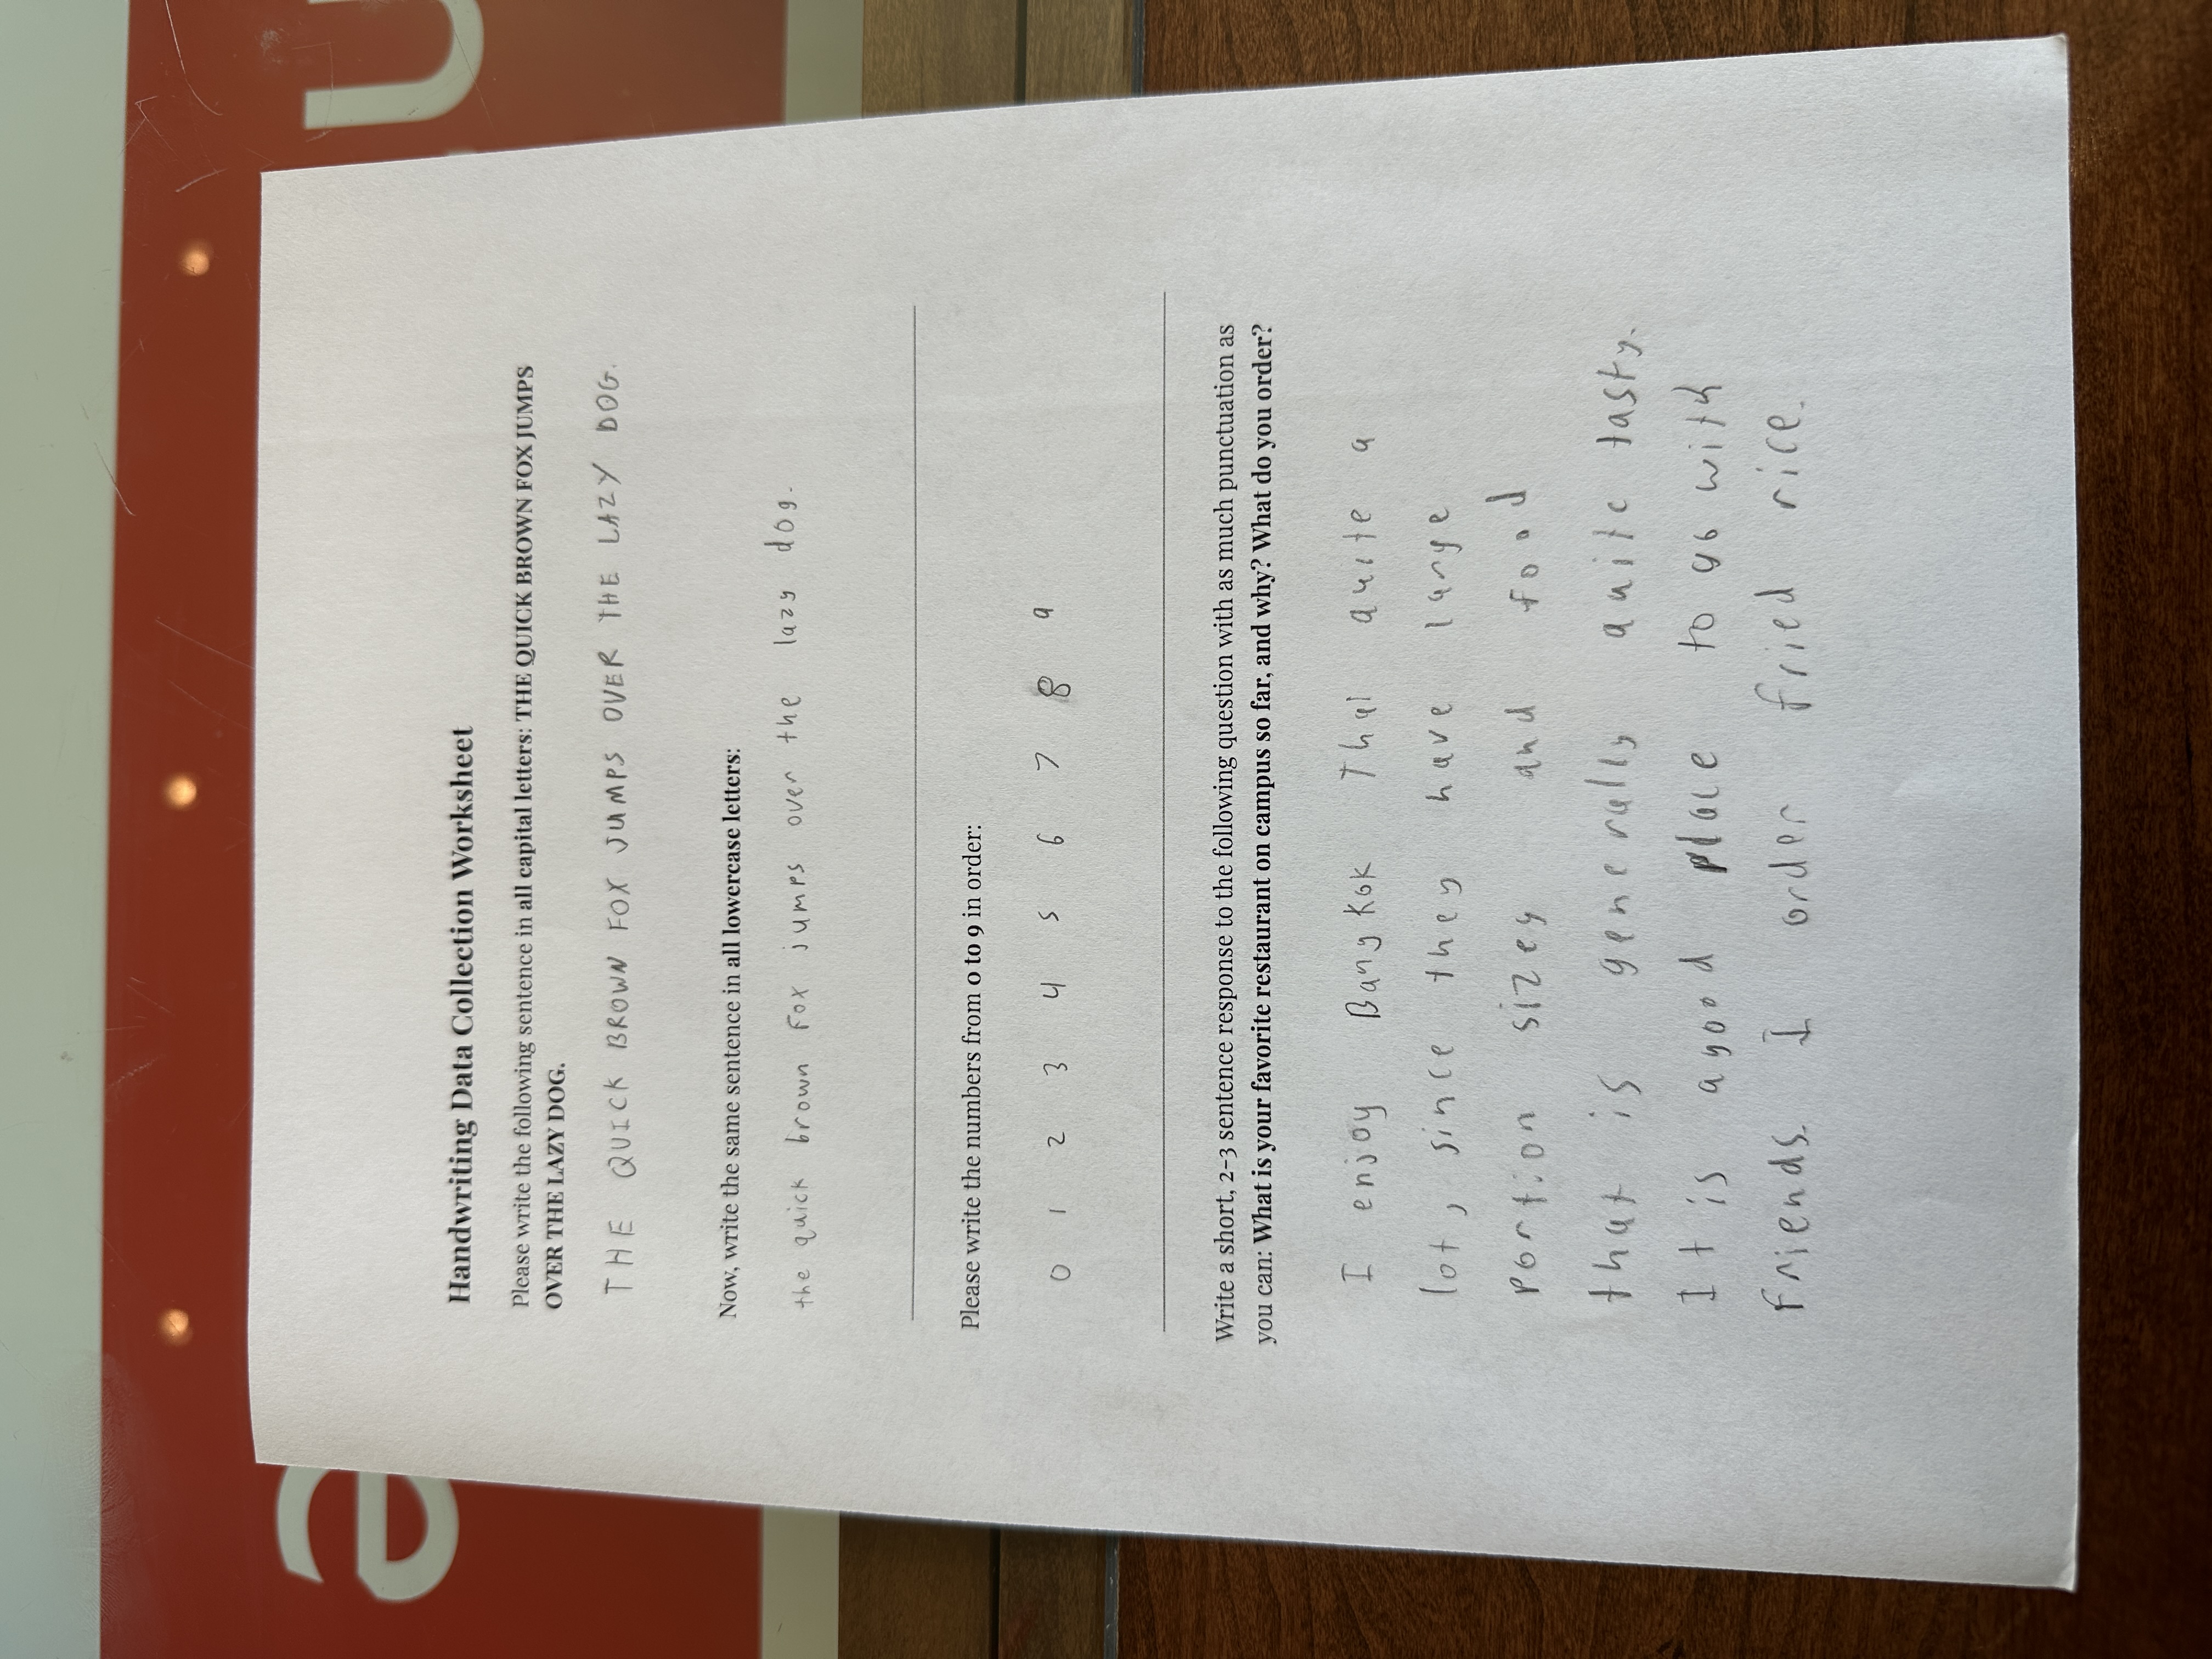 Handwriting Data Collection Worksheet
Please write the following sentence in all capital letters: THE QUICK BROWN FOX JUMPS
OVER THE LAZY DOG.
THE QUICK BROWN FOX JUMPS OVER THE LAZY DOG.
Now, write the same sentence in all lowercase letters:
the quick brown fox jumps over the lazy dog.
Please write the numbers from 0 to 9 in order:
0 1 2 3 4 5 6 7 8 9
Write a short, 2-3 sentence response to the following question with as much punctuation as
you can: What is your favorite restaurant on campus so far, and why? What do you order?
I enjoy Bangkok Thai quite a
lot, since they have large
portion sizes and food
that is generally quite tasty.
It is a good place to go with
friends. I order fried rice.